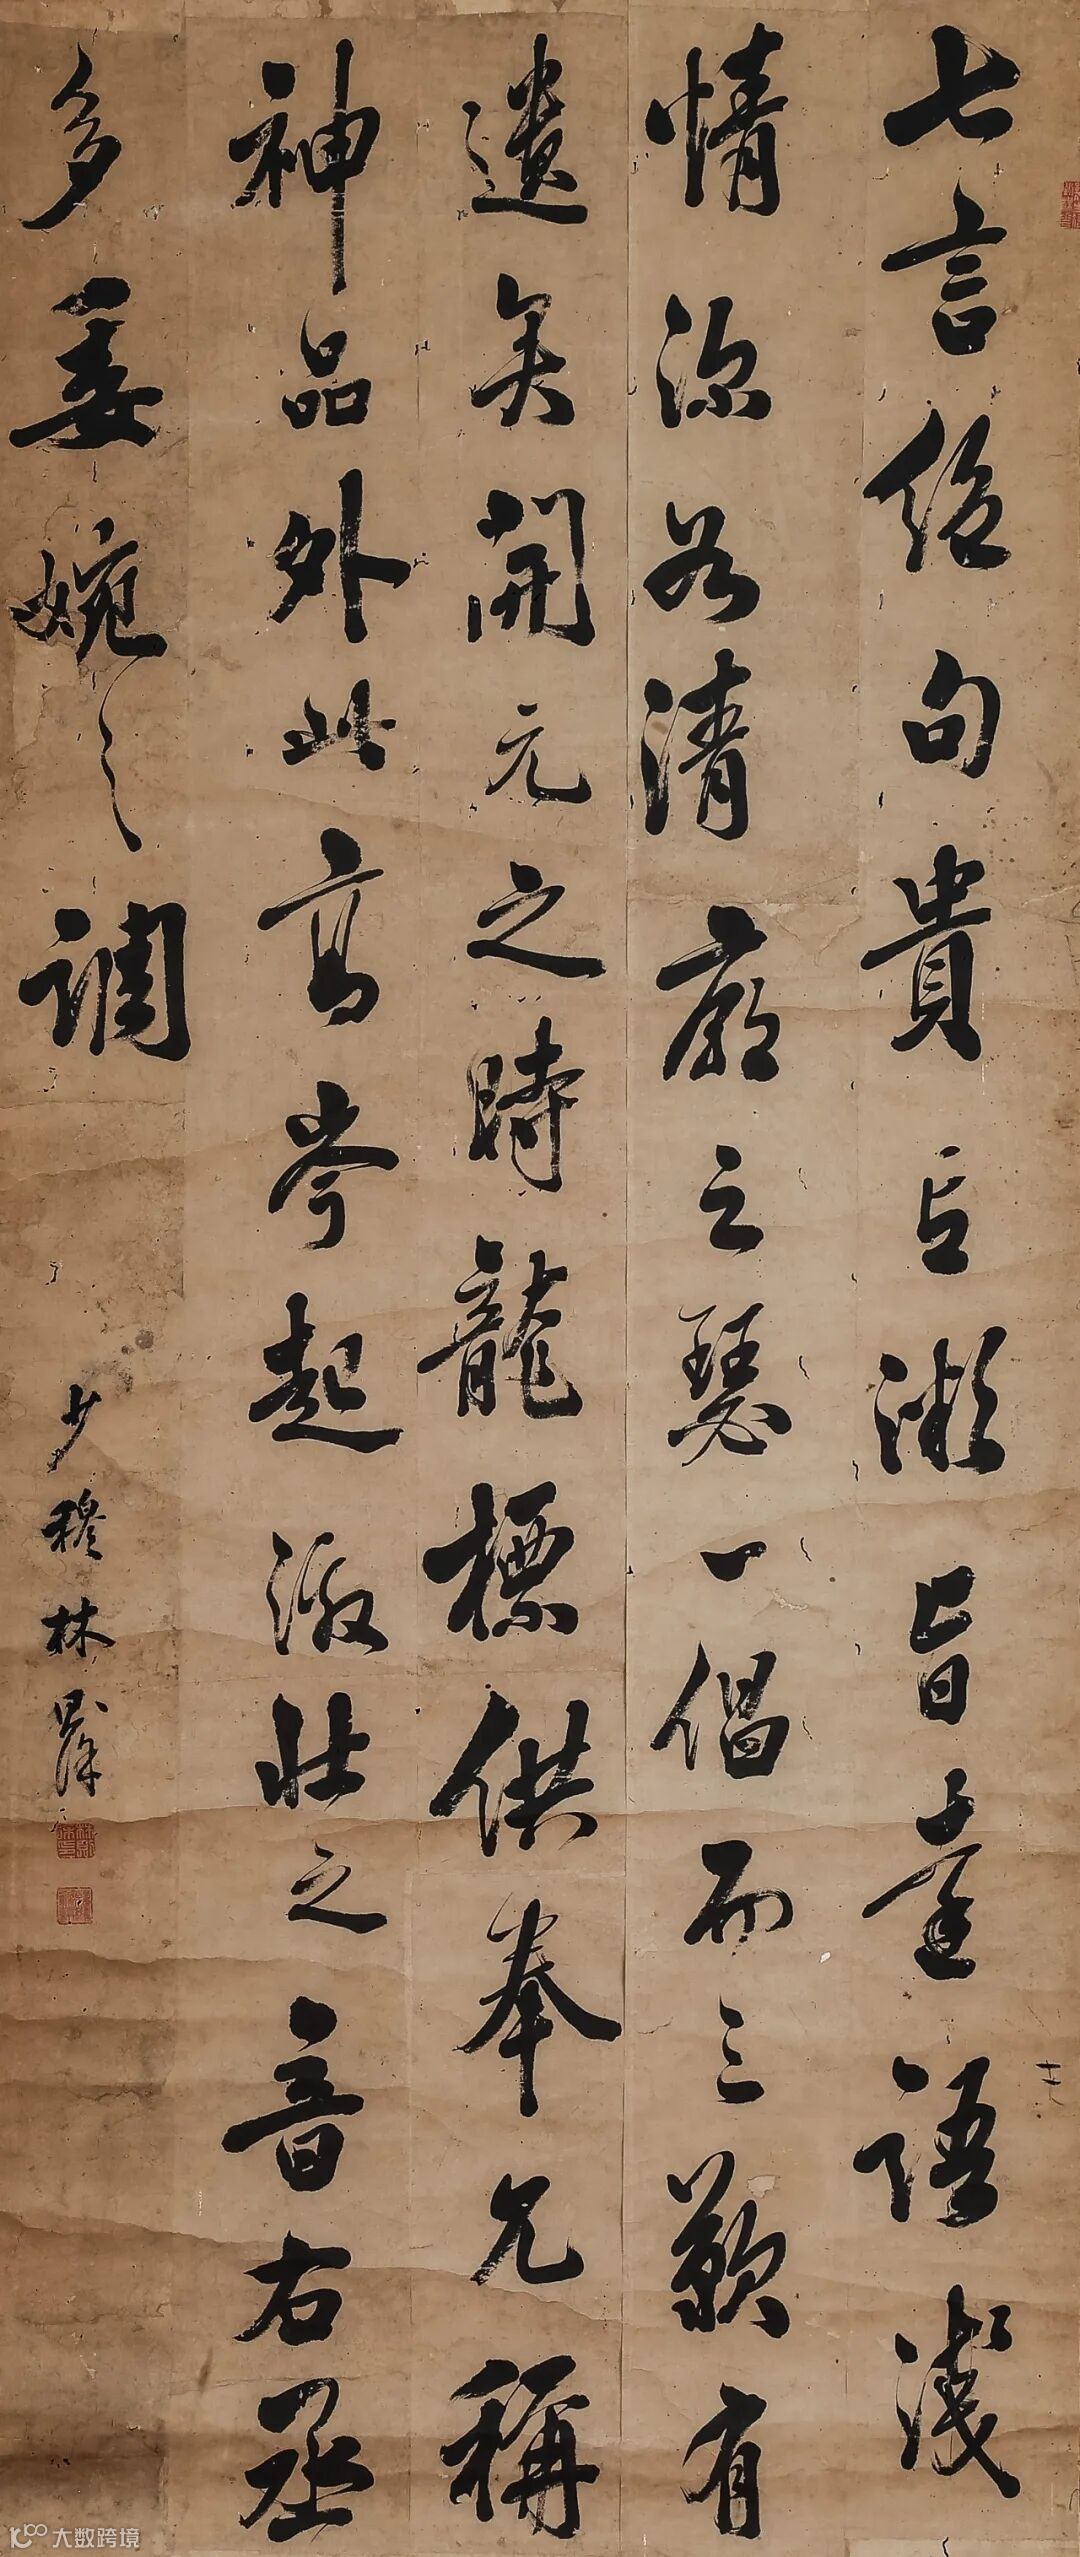 七言絕句貴言微旨遠語淺
情深如清廟之瑟一倡而三歎有
遺矣開元之時龍標供奉允稱
神品外此高岑起激壯之音右丞
多委婉之調
少穆林則徐
大数跨境